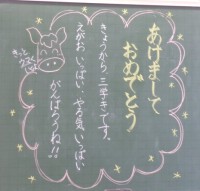 あけまして
おめでとう
きょうから、三学きです。
えがお いっぱい・やる気 いっぱい
がんばろうね!!